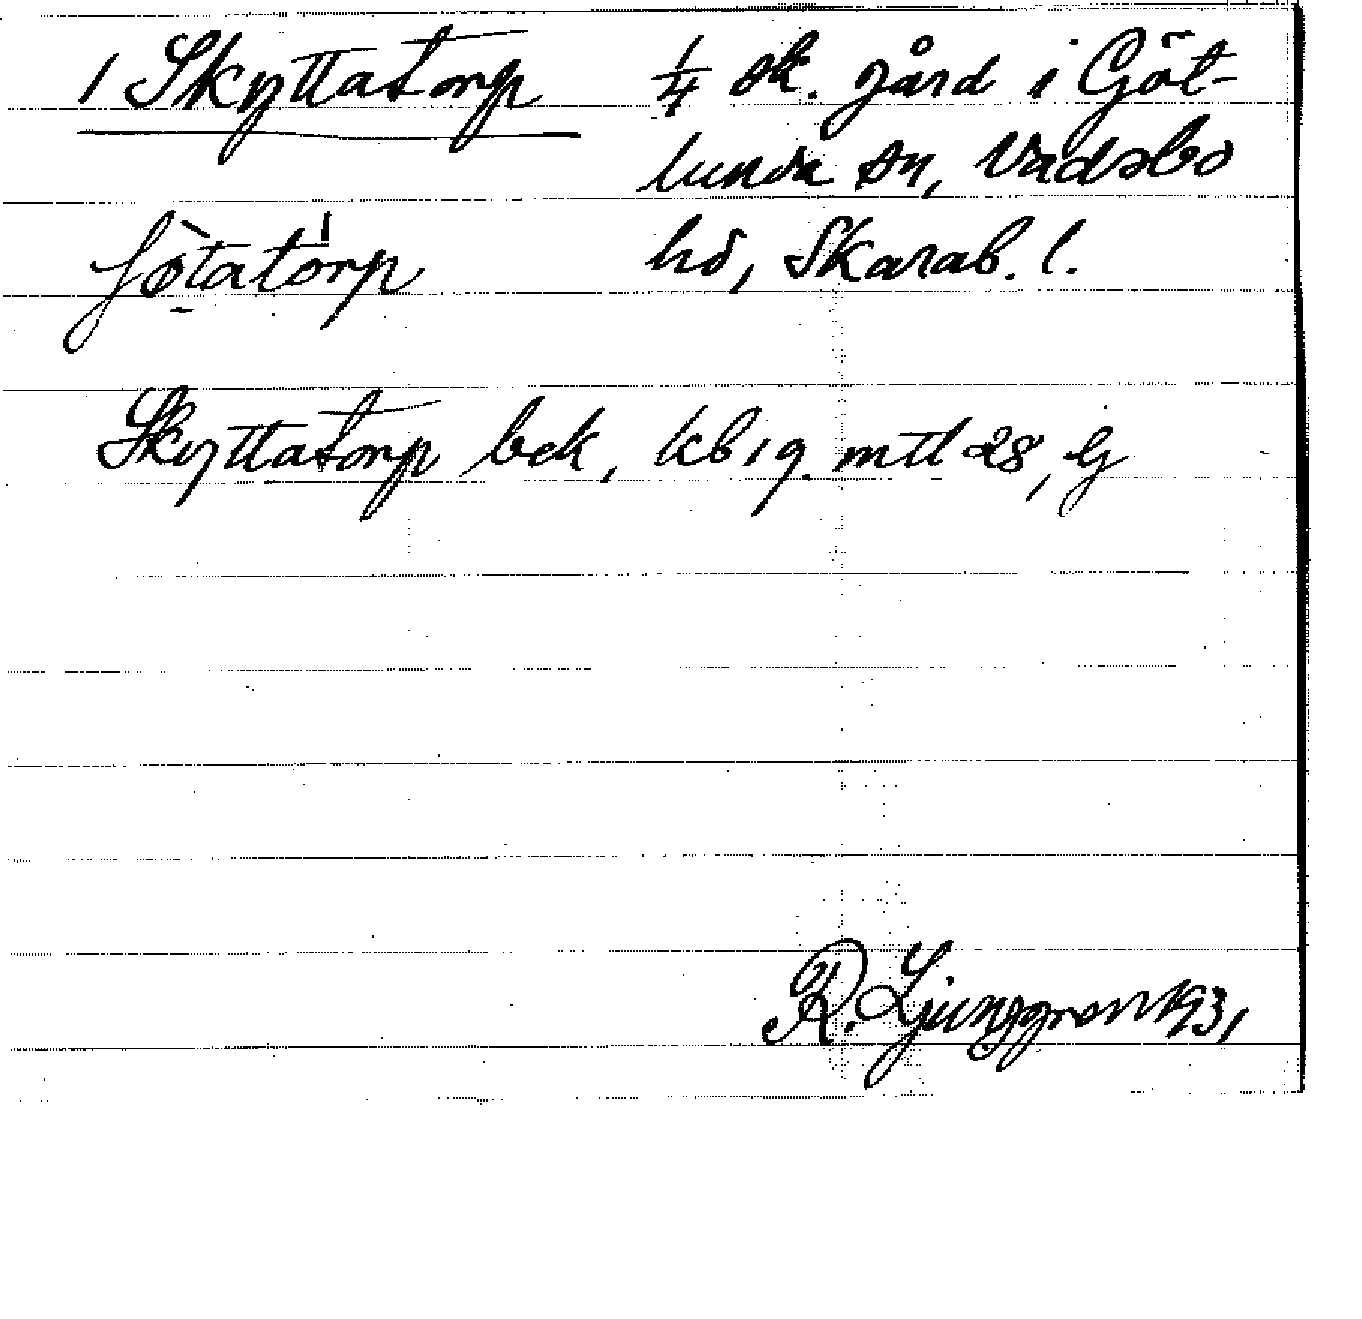 1 Skyttatorp 1/4 sk. gård i Göt-
lunda sn, Vadsbo
hd, Skarab. l.
Skyttatorp bek, kb 19. mtl 28, G
R. Ljunggren 1931